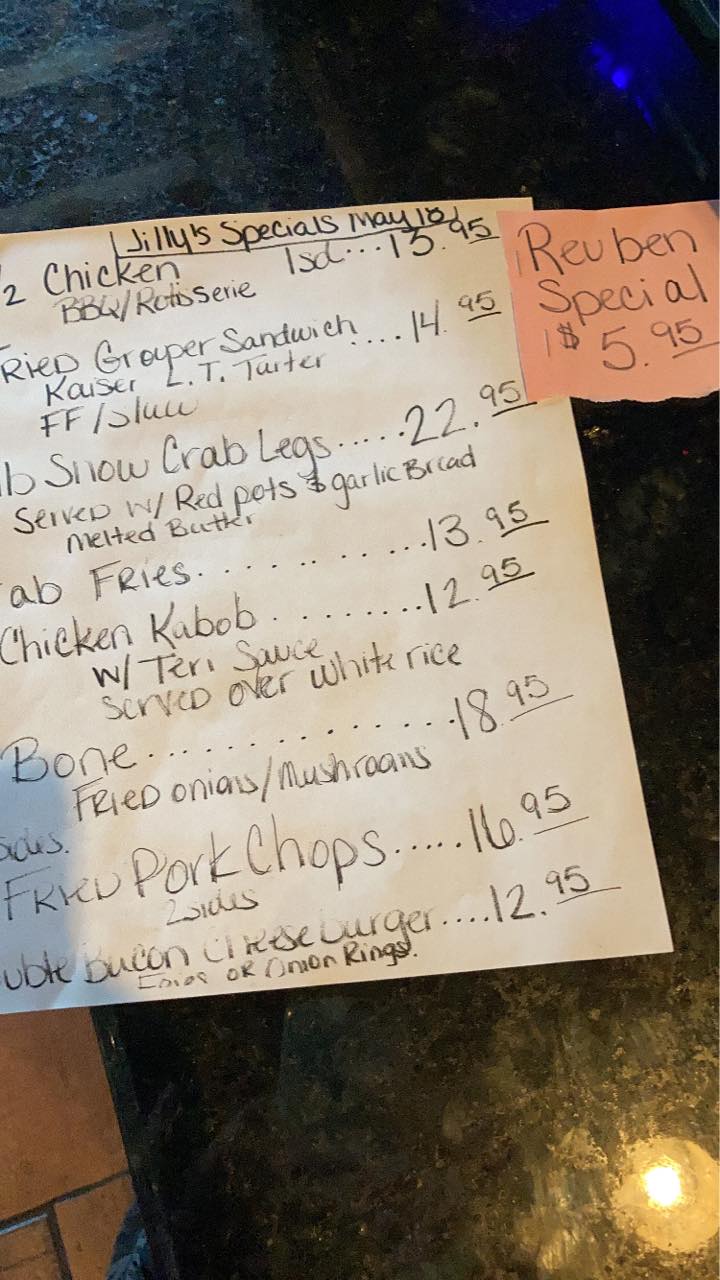 Jilly's Specials May 18
/2 Chicken 1sd...13.95
BBQ/Rotisserie
RIED Grouper Sandwich ....14.95
Kaiser L.T. Tarter
FF/Slaw
lb Snow Crab Legs.....22.95
Served w/ Red pots & garlic Bread
Melted Butter
ab Fries...........13.95
Chicken Kabob.........12.95
w/ Teri Sauce
Served over white rice
Bone...............18.95
FRIED onions/Mushrooms
sides.
FRIED Pork Chops.....16.95
2sides
uble Bacon Cheeseburger....12.95
Fries OR Onion Rings.
Reuben
Special
$5.95